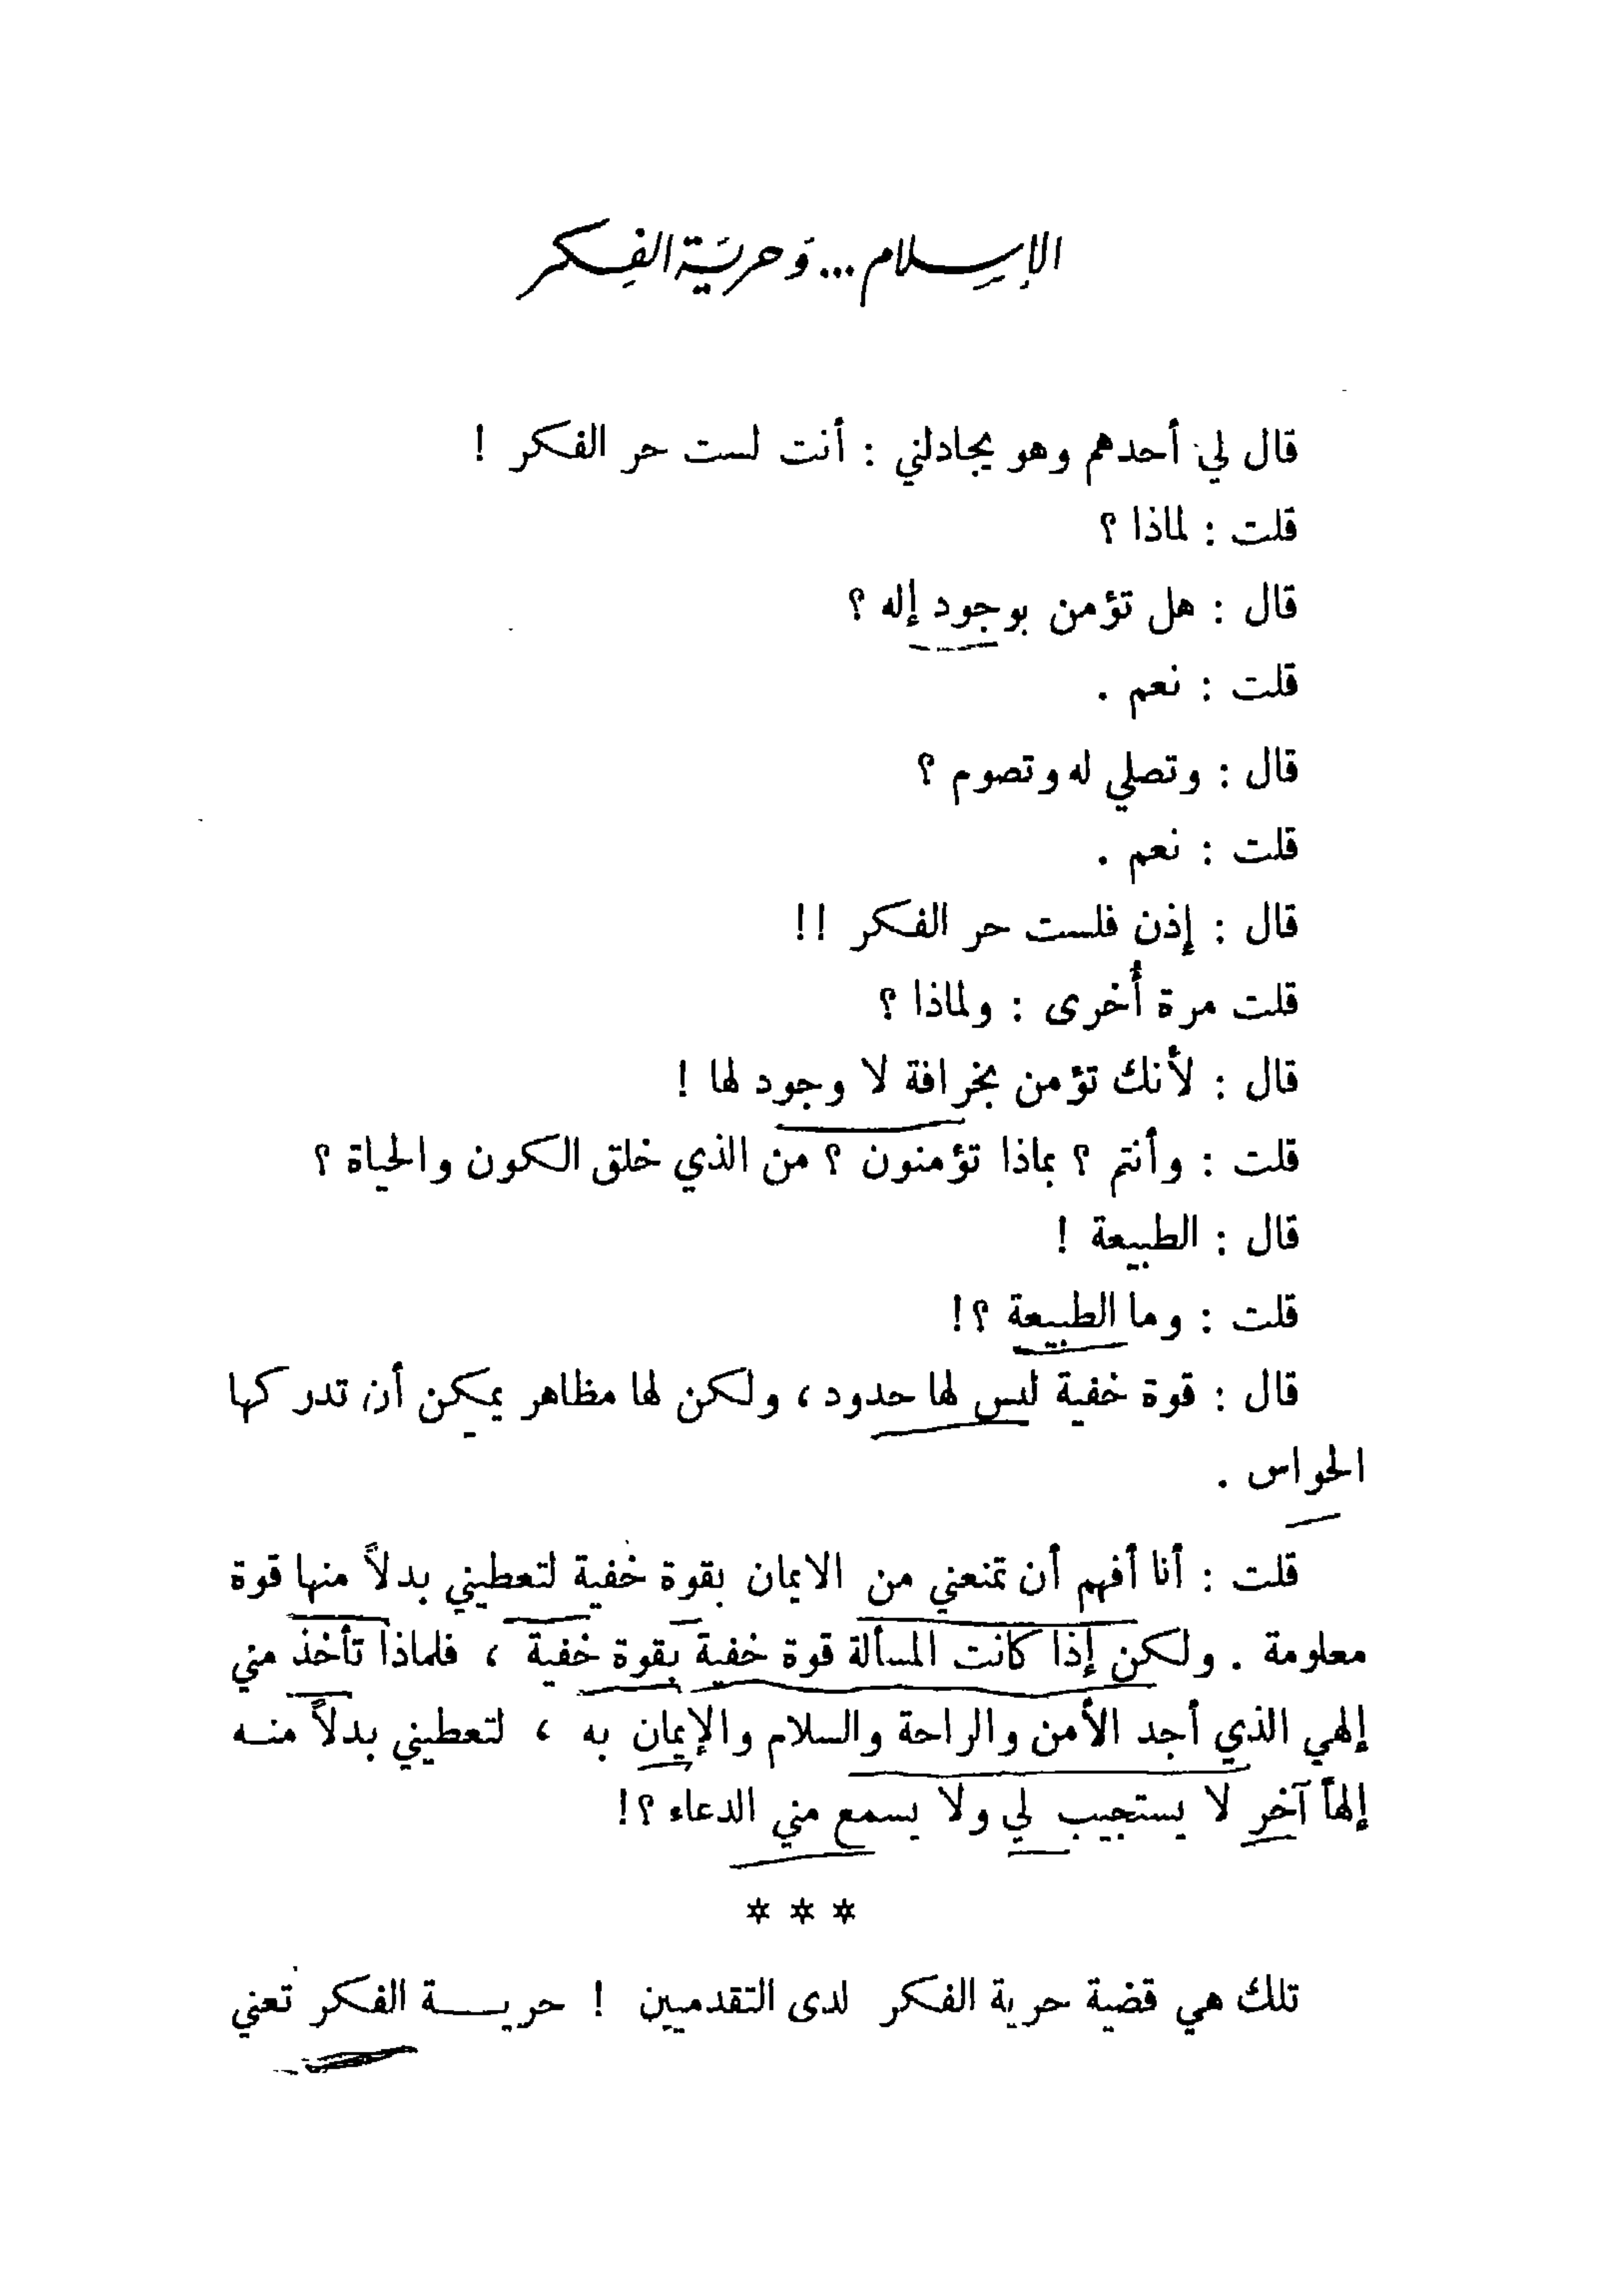 الإسلام... وَحريَّة الفِكر
قال لي أحدهم وهو يجادلني : أنت لست حر الفكر !
قلت : لماذا ؟
قال : هل تؤمن بوجود إله ؟
قلت : نعم .
قال : وتصلي له وتصوم ؟
قلت : نعم .
قال : إذن فلست حر الفكر !!
قلت مرة أُخرى : ولماذا ؟
قال : لأنك تؤمن بخرافة لا وجود لها !
قلت : وأنتم ؟ بماذا تؤمنون ؟ من الذي خلق الكون والحياة ؟
قال : الطبيعة !
قلت : وما الطبيعة ؟!
قال : قوة خفية ليس لها حدود ، ولكن لها مظاهر يمكن أن تدركها
الحواس .
قلت : أنا أفهم أن تمنعني من الايمان بقوة خفية لتعطيني بدلاً منها قوة
معلومة . ولكن إذا كانت المسألة قوة خفية بقوة خفية ، فلماذا تأخذ مني
إلهي الذي أجد الأمن والراحة والسلام والإيمان به ، لتعطيني بدلاً منـه
إلهاً آخر لا يستجيب لي ولا يسمع مني الدعاء ؟!
* * *
تلك هي قضية حرية الفكر لدى التقدميين ! حريـــة الفكر تعني